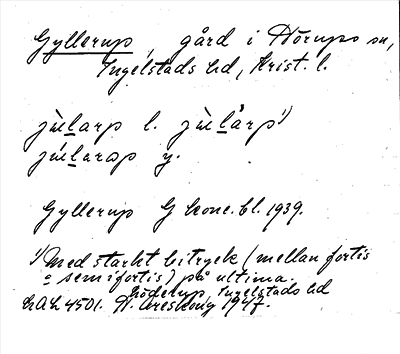 Gyllerup, gård i Hörups sn,
Ingelstads hd, Krist. l.
jùlarp l. jùlårp¹)
júlarap y.
Gyllerup G konc.bl. 1939.
¹) Med starkt bitryck (mellan fortis
o semifortis) på ultima.
Löderup, Ingelstads hd
LAL 4501. H. Areskoug 1947.